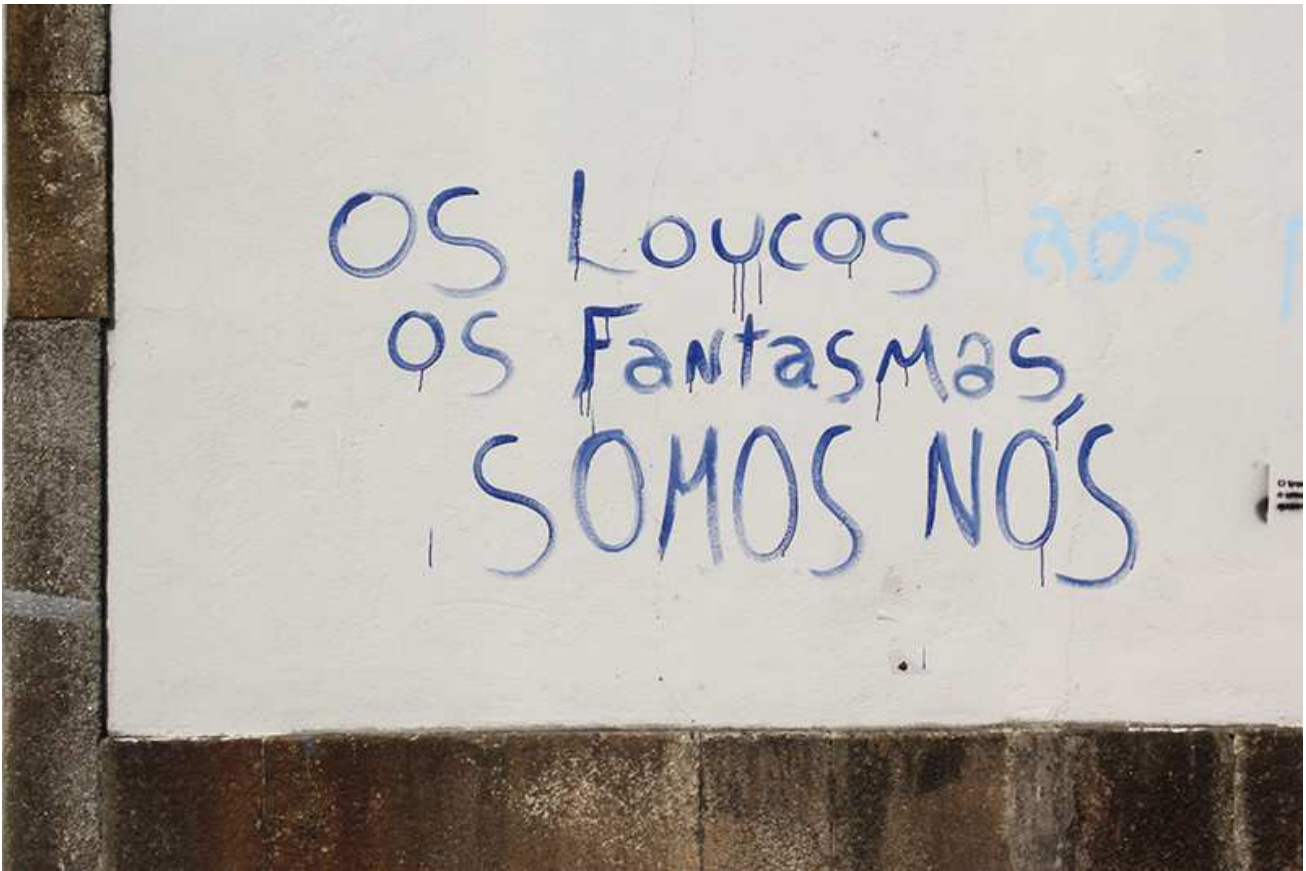 OS LOUCOS aos
OS FantasMas
SOMOS NÓS